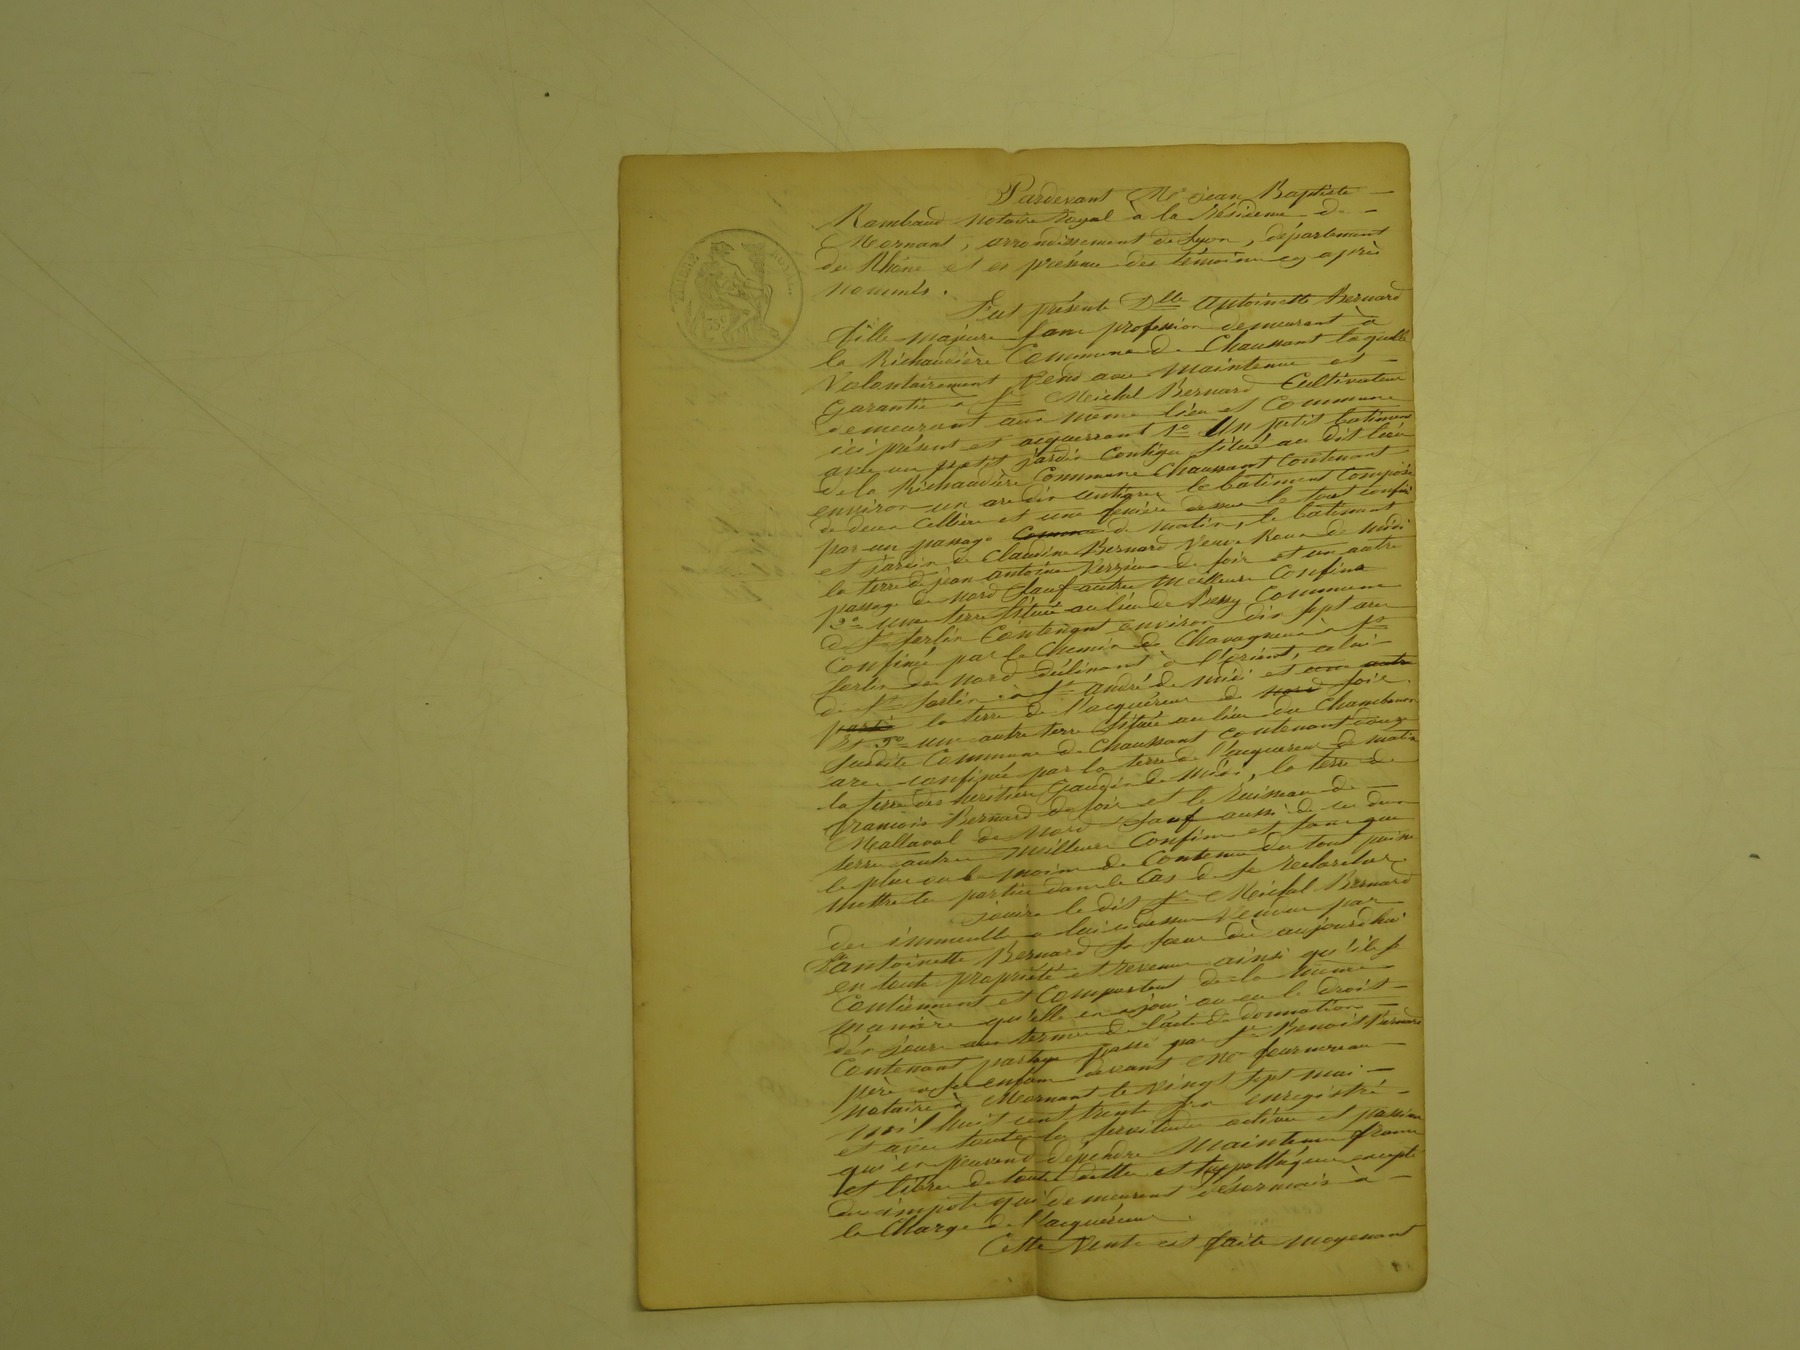 Pardevant Me jean Baptiste
Rambaud notaire Royal à la Résidence de
Mornant, arrondissement de Lyon, département
du Rhône et en présence des témoins cy après
nommés.
Fut présente Dlle antoinette Bernard
fille majeure sans profession demeurant à
la Richaudière Commune de Chaussant laquelle
Volontairement Vend avec maintenue et
Garantie à Sr Meichel Bernard Cultivateur
demeurant aux même lieu et Commune
ici présent et acquerrant 1o Un petit batiment
avec un petit jardin Contigu situé au dit lieu
de la Richaudière Commune Chaussant Contenant
environ un are dix centiares le batiment Composé
de deux Celliers et une fenière dessus le tout confiné
par un passage de matin, le batiment
et jardin de Claudine Bernard Veuve de midi
la terre de jean antoine de soir et un autre
passage de nord sauf autres meilleurs Confins
2o une terre située au lieu de Commune
de St Sorlin Contenant environ dix sept ares
Confinée par le Chemin de Chavagneux à St
Sorlin de nord déclinant à l'orient, celui
de St Sorlin à St andré de midi et
la terre de l'acquéreur de soir.
Et 3o une autre terre située au lieu du
susdite Commune de Chaussant contenant douze
ares confinée par la terre de l'acquereur de matin
la terre des héritiers Gaudin de midi, la terre de
francois Bernard de soir et le Ruisseau de
Mallaval de nord sauf aussi de ces deux
terres autres meilleurs Confins et sans que
le plus ou le moins de Contenue du tout puisse
mettre les parties dans le Cas de se rechercher.
Jouira le dit Sr Meichel Bernard
des immeubles a lui ci dessus Vendus par
antoinette Bernard sa sœur dès aujourdhui
en toute propriété et revenus ainsi qu'ils se
Contiennent et Comportent de la même
manière qu'elle en a joui ou eu le droit
d'en jouir aux termes de l'acte de donnation
Contenant partage passé par Sr Benoit Bernard
père à ses enfans devant Me fournereau
notaire à Mornant le Vingt sept mai
mil huit cent trente enregistré
et avec toutes les servitudes actives et passives
qui en peuvent dépendre Maintenus francs
et libres de toutes dettes et hyppothéques excepté
des impots qui demeurent désormais à
la Charge de l'acquéreur.
Cette Vente est faite moyenant